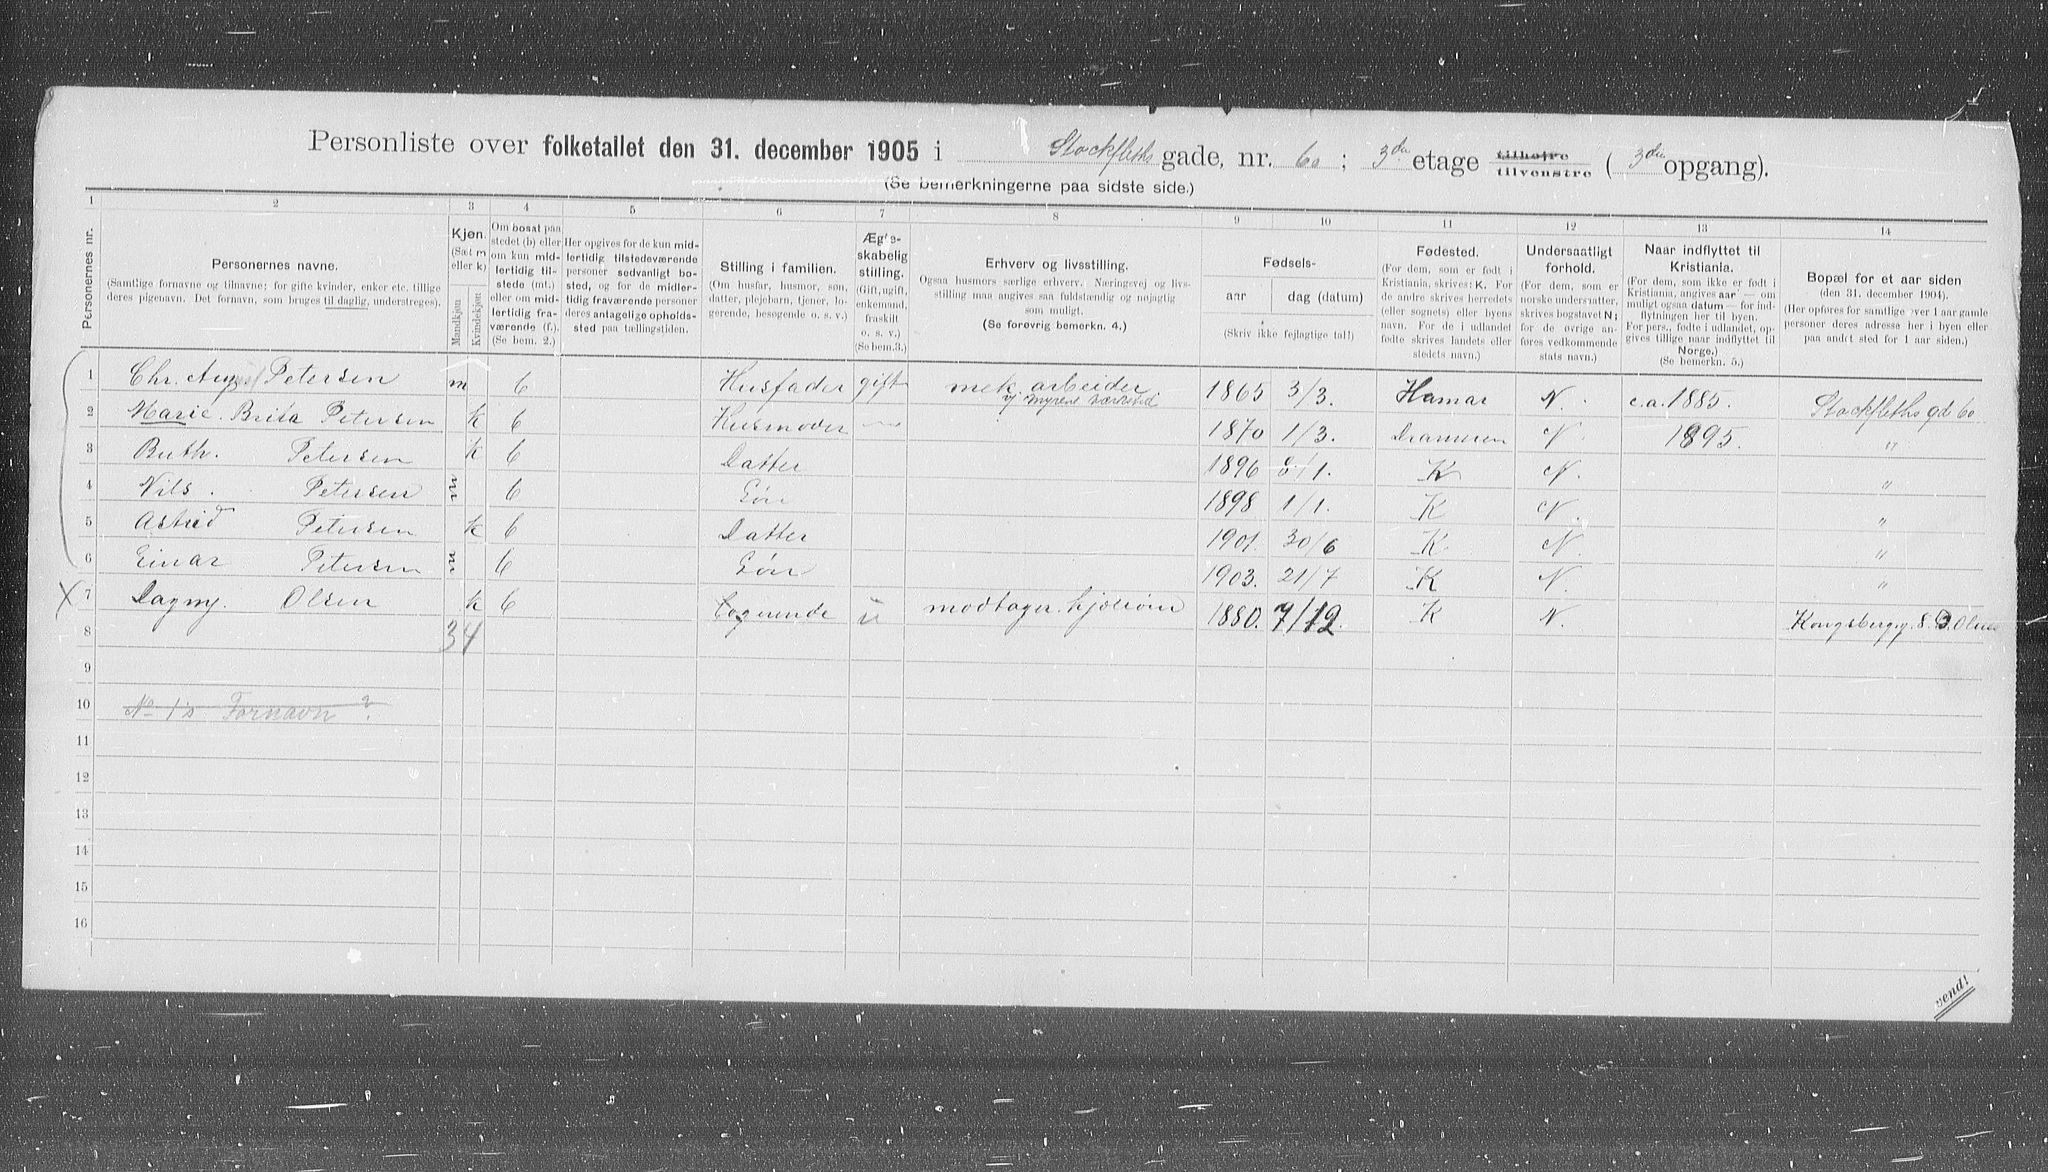 Personliste over folketallet den 31. december 1905 i Stockfleths gade, nr. 60; 3die etage tilhøire tilvenstre (3die opgang).
(Se bemerkningerne paa sidste side.)
1 2 3 4 5 6 7 8 9 10 11 12 13 14
Personernes nr.
Personernes navne.
(Samtlige fornavne og tilnavne; for gifte kvinder, enker etc. tillige
deres pigenavn. Det fornavn, som bruges til daglig, understreges).
Kjøn.
(Sæt m
eller k)
Mandkjøn
Kvindekjøn
Om bosat paa
stedet (b) eller
om kun mid-
lertidig til-
stede (mt.)
eller om mid-
lertidig fra-
værende (f.).
(Se bem. 2.)
Her opgives for de kun mid-
lertidig tilstedeværende
personer sedvanligt bo-
sted, og for de midler-
tidig fraværende personer
deres antagelige opholds-
sted paa tællingstiden.
Stilling i familien.
(Om husfar, husmor, søn,
datter, plejebarn, tjener, lo-
gerende, besøgende o. s. v.)
Ægte-
skabelig
stilling.
(Gift, ugift,
enkemand,
fraskilt
o. s. v.)
(Se bem. 3.)
Erhverv og livsstilling.
Ogsaa husmors særlige erhverv. Næringsvej og livs-
stilling maa angives saa fuldstændig og nøjagtig
som muligt.
(Se forøvrig bemerkn. 4.)
Fødsels-
aar dag (datum)
(Skriv ikke fejlagtige tal!)
Fødested.
(For dem, som er født i
Kristiania, skrives: K. For
de andre skrives herredets
(eller sognets) eller byens
navn. For de i udlandet
fødte skrives landets eller
stedets navn.)
Undersaatligt
forhold.
(For dem, som er
norske undersatter,
skrives bogstavet N;
for de øvrige an-
føres vedkommende
stats navn.)
Naar indflyttet til
Kristiania.
(For dem, som ikke er født i
Kristiania, angives aar — om
muligt ogsaa datum — for ind-
flytningen her til byen.
For pers., fødte i udlandet, op-
gives tillige naar indflyttet til
Norge.)
(Se bemerkn. 5.)
Bopæl for et aar siden
(den 31. december 1904).
(Her opføres for samtlige over 1 aar gamle
personer deres adresse her i byen eller
paa andet sted for 1 aar siden.)
1 Chr. August Petersen m b Husfader gift mek. arbeider v/ Myrens værksted 1865 3/3. Hamar N. c.a. 1885. Stockfleths gd 60
2 Marie Brita Petersen k b Husmoder — 1870 1/3. Drammen N 1895. "
3 Ruth. Petersen k b Datter 1896 /1. K N. "
4 Nils. Petersen m b Søn 1898 1/1. K N. "
5 Astrid Petersen k b Datter 1901. 30/6 K N. "
6 Einar Petersen m b Søn 1903. 21/7 K N. "
X 7 Dagny. Olsen k b Logerende u modtager kjolesøm 1880. 7/12. K N.
8 34
9
10 No 1's Fornavn?
11
12
13
14
15
16
vend!